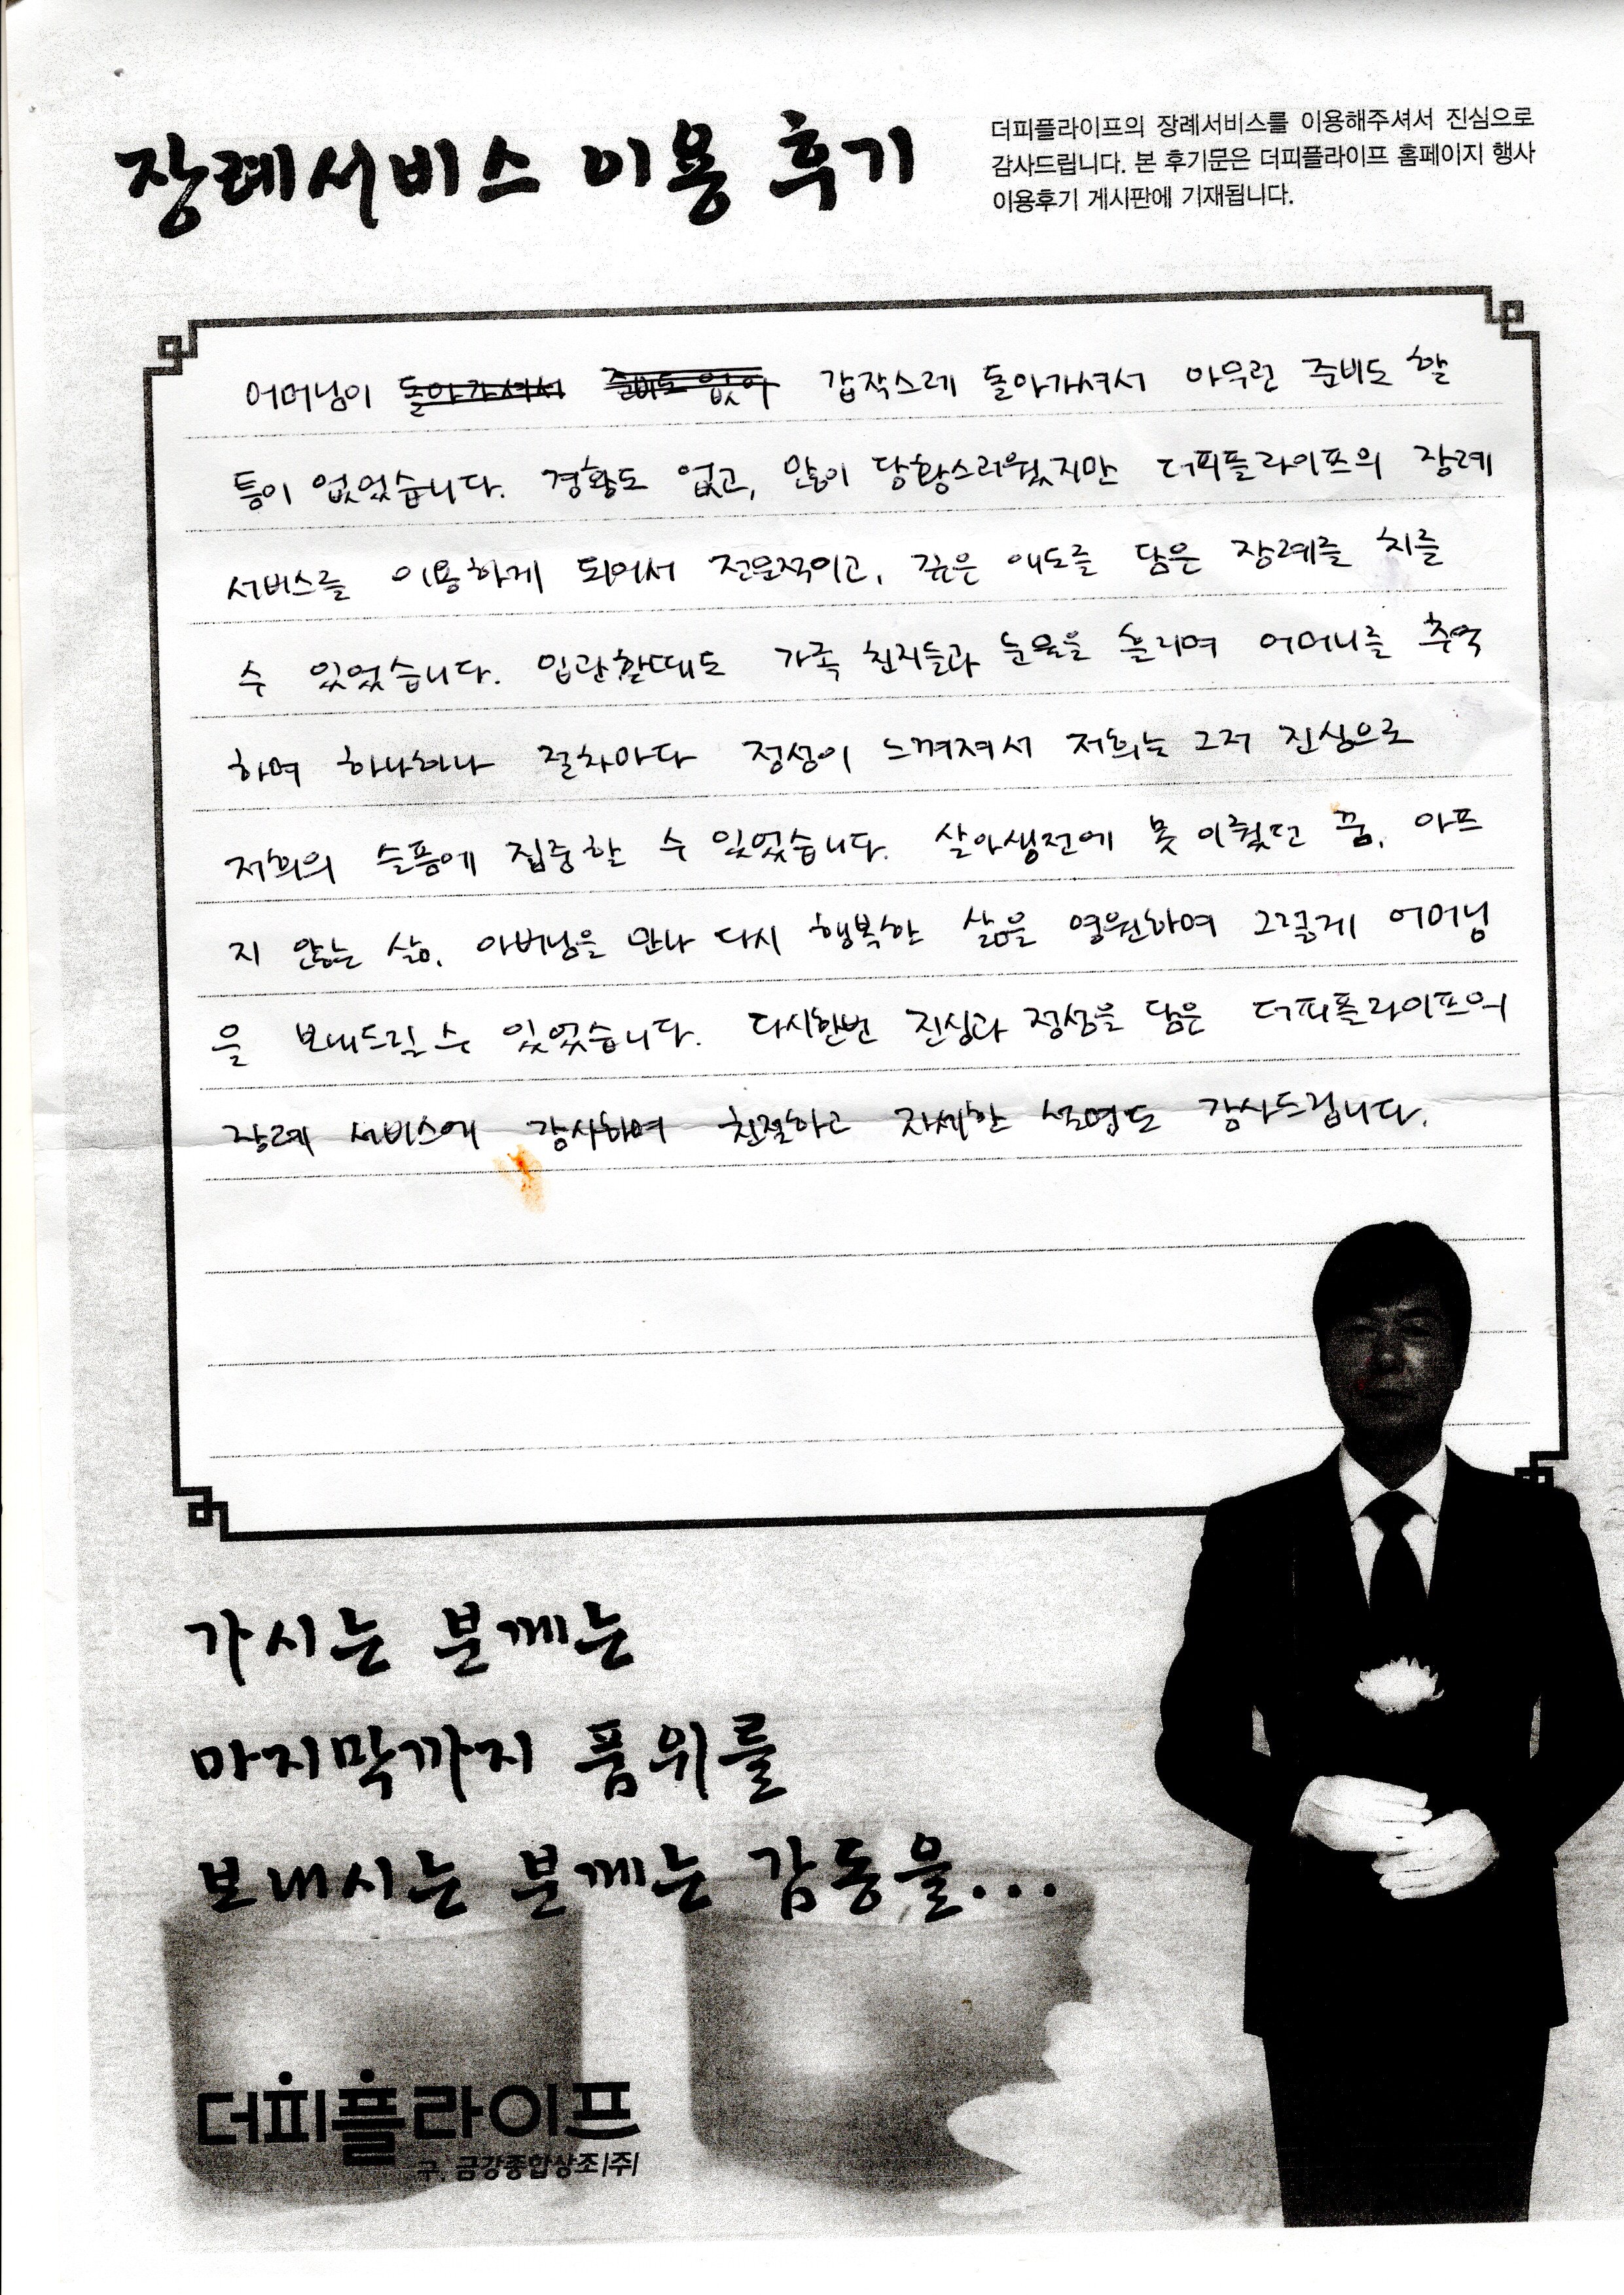 장례서비스 이용 후기
더피플라이프의 장례서비스를 이용해주셔서 진심으로
감사드립니다. 본 후기문은 더피플라이프 홈페이지 행사
이용후기 게시판에 기재됩니다.
어머님이 돌아가셔서 준비도 없어 갑작스레 돌아가셔서 아무런 준비도 할
틈이 없었습니다. 경황도 없고, 많이 당황스러웠지만 더피플라이프의 장례
서비스를 이용하게 되어서 전문적이고, 깊은 애도를 담은 장례를 치를
수 있었습니다. 입관할때도 가족 친지들과 눈물을 흘리며 어머니를 추억
하며 하나하나 절차마다 정성이 느껴져서 저희는 그저 진심으로
저희의 슬픔에 집중할 수 있었습니다. 살아생전에 못 이뤘던 꿈, 아프
지 않는 삶, 아버님을 만나 다시 행복한 삶을 영원하며 그렇게 어머님
을 보내드릴 수 있었습니다. 다시한번 진심과 정성을 담은 더피플라이프의
장례 서비스에 감사하며 친절하고 자세한 설명도 감사드립니다.
가시는 분께는
마지막까지 품위를
보내시는 분께는 감동을...
더피플라이프
구. 금강종합상조(주)